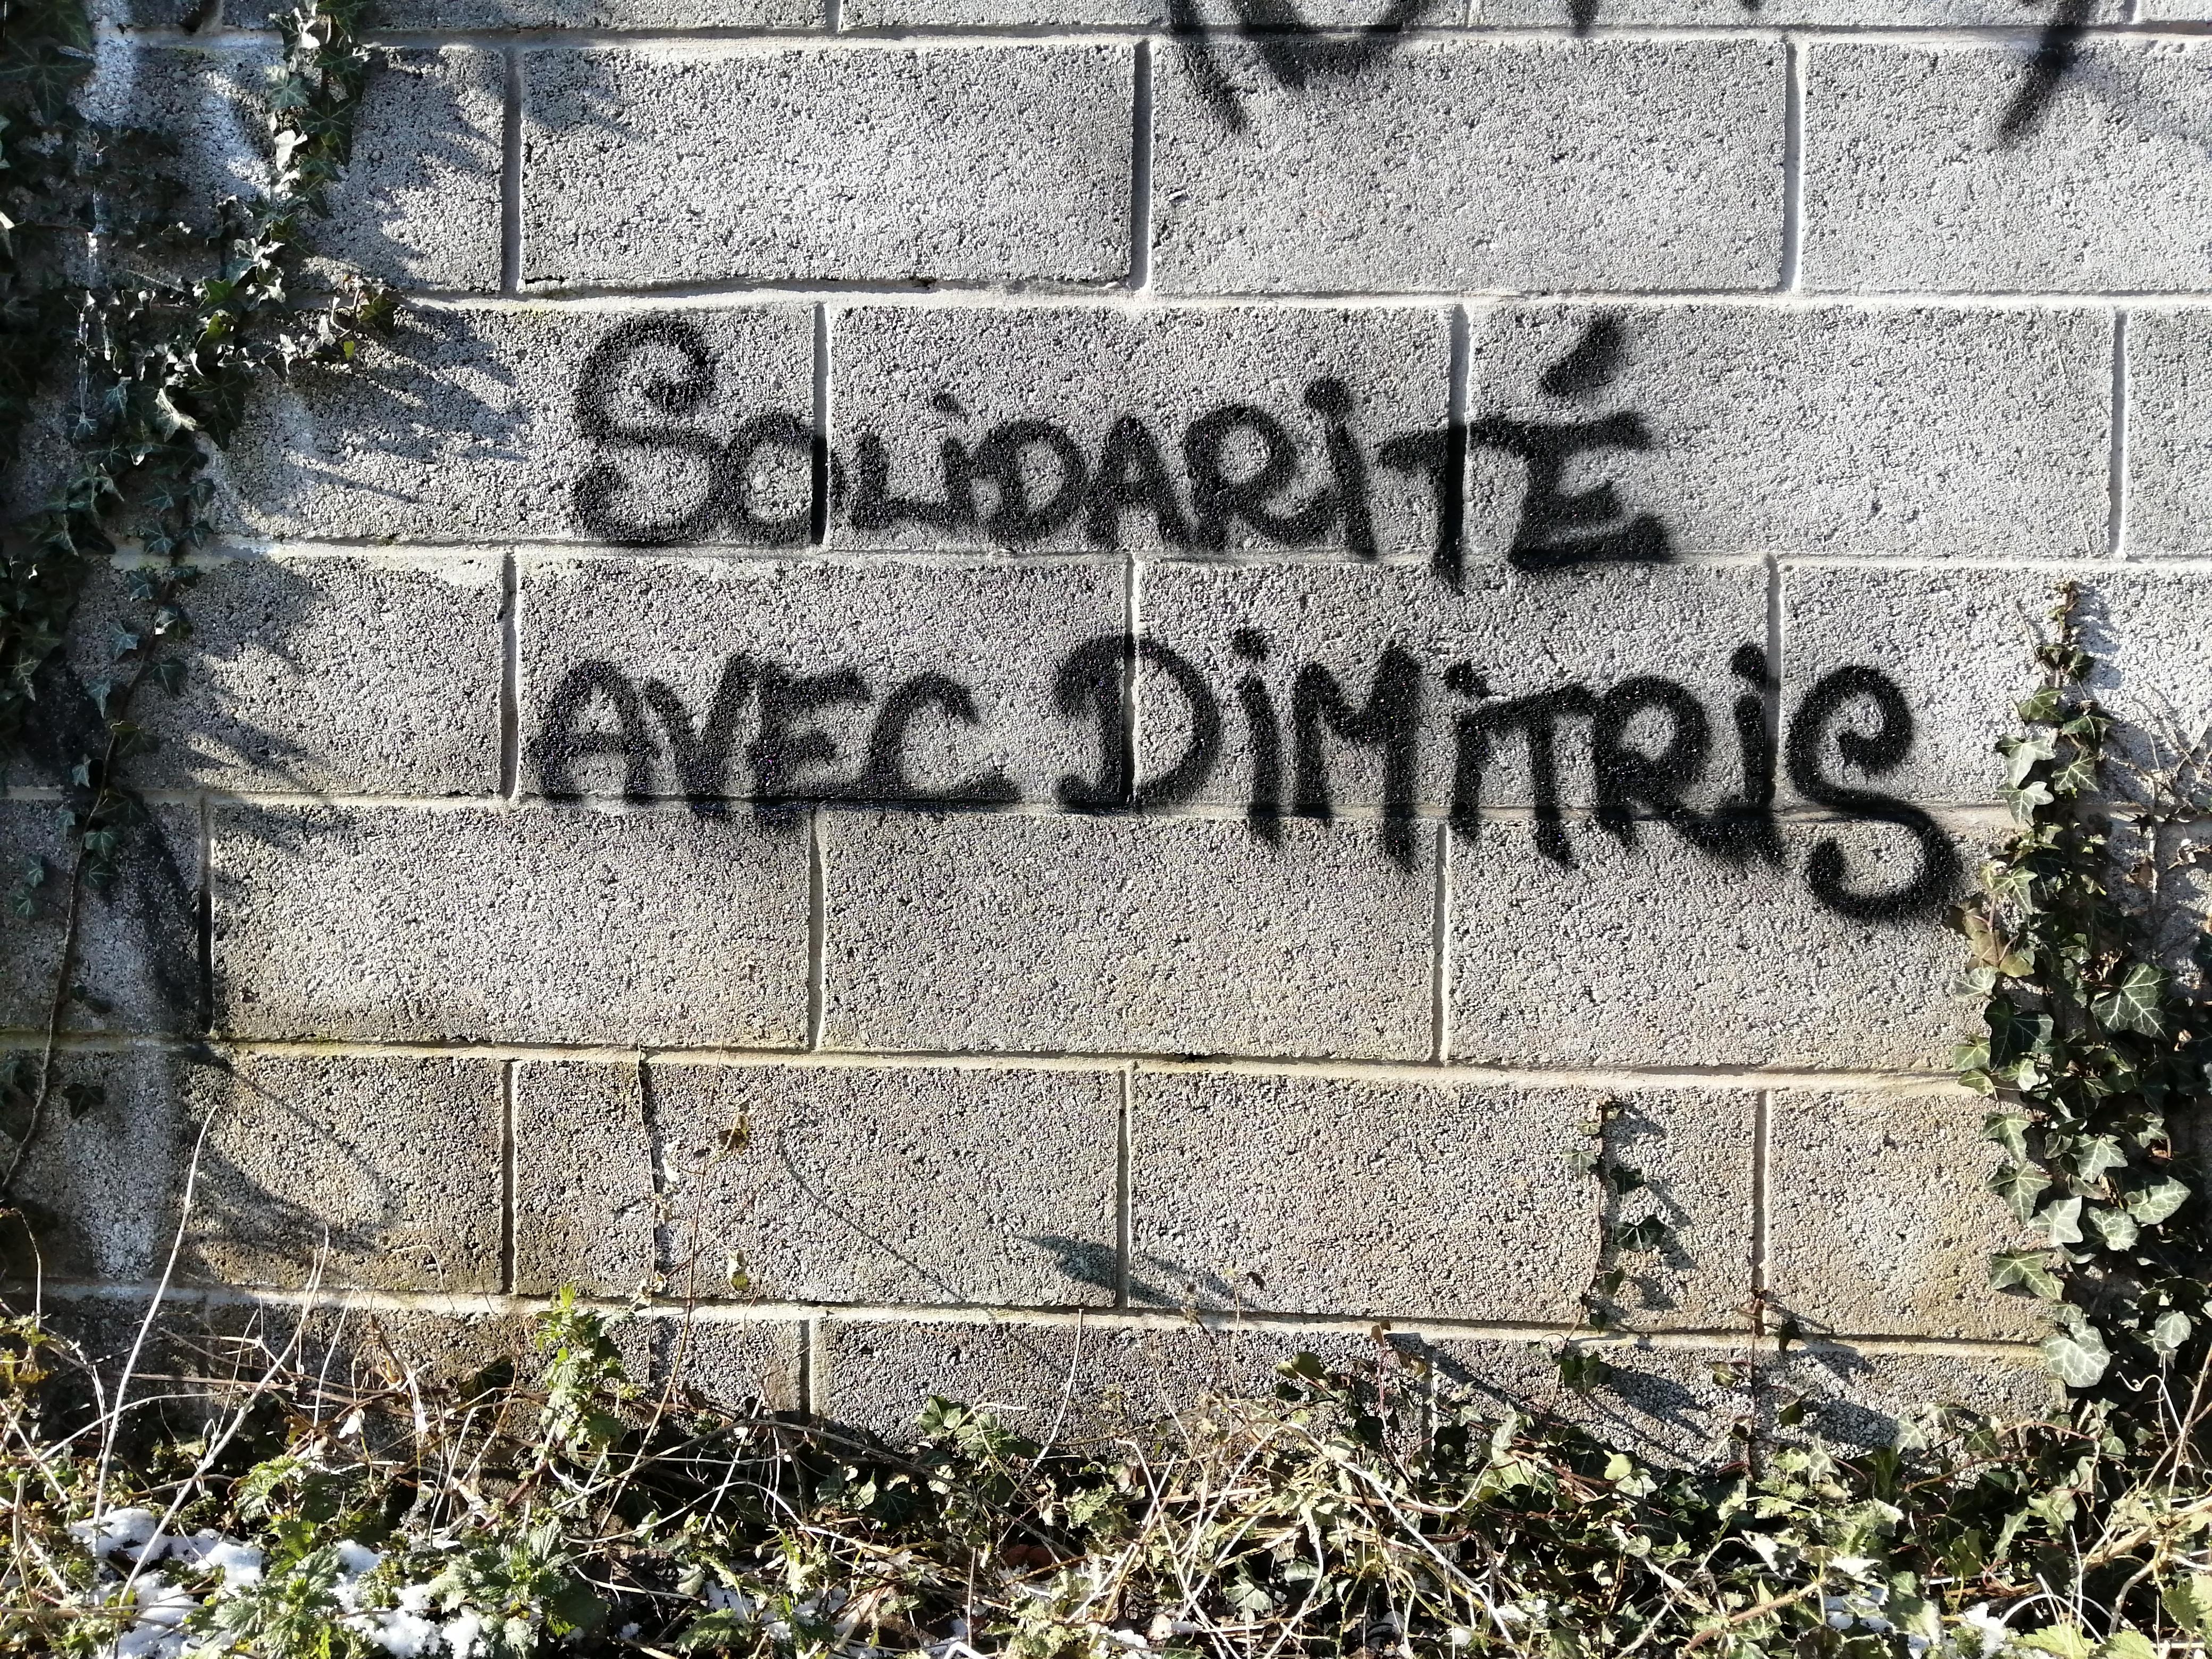 SOLiDARiTÉ
AVEC DiMiTRiS